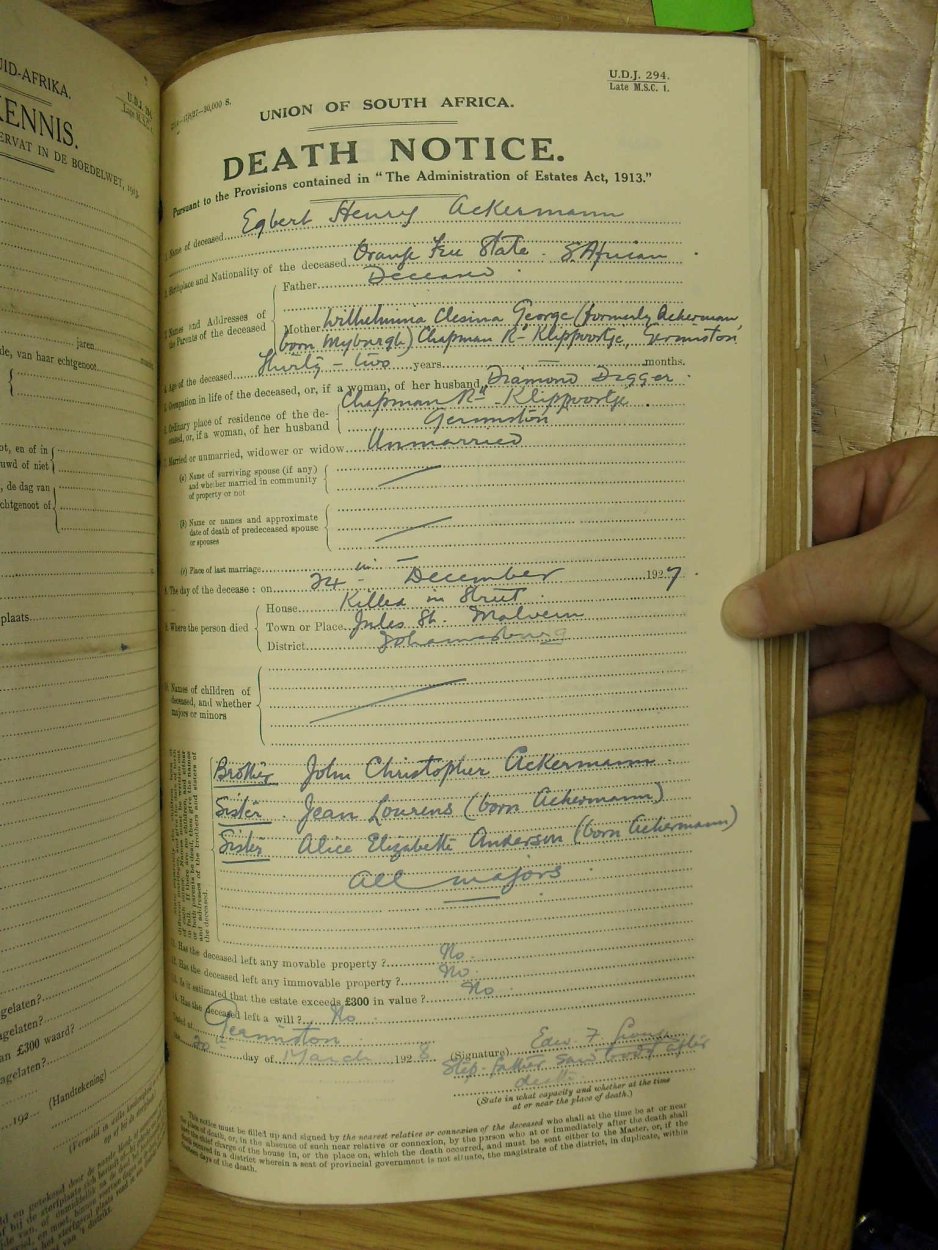 UID-AFRIKA.
U.D.J. 294
Late M.S.C. 1.
KENNIS.
ERVAT IN DE BOEDELWET, 1913.
jaren
maanden
de, van haar echtgenoot
ot, en of in
uwd of niet
, de dag van
chtgenoot of
plaats
gelaten?
agelaten?
an £300 waard?
agelaten?
192
(Handtekening)
U.D.J. 294.
Late M.S.C. 1.
UNION OF SOUTH AFRICA.
DEATH NOTICE.
Pursuant to the Provisions contained in "The Administration of Estates Act, 1913."
1. Name of deceased Egbert Henry Ackermann
2. Birthplace and Nationality of the deceased Orange Free State. S African
3. Names and Addresses of the Parents of the deceased
Father Deceased
Mother Wilhelmina Clesina George (formerly Ackerman
born Myburgh) Chapman Rd Klippoortje, Germiston
4. Age of the deceased Thirty-two years — months.
5. Occupation in life of the deceased, or, if a woman, of her husband Diamond Digger
6. Ordinary place of residence of the deceased, or, if a woman, of her husband
Chapman Rd - Klippoortje
Germiston
7. Married or unmarried, widower or widow Unmarried
(a) Name of surviving spouse (if any) and whether married in community of property or not
(b) Name or names and approximate date of death of predeceased spouse or spouses
(c) Place of last marriage —
8. The day of the decease: on 24th December 1927
9. Where the person died
House Killed in Street
Town or Place Jules St. Malvern
District Johannesburg
10. Names of children of deceased, and whether majors or minors
Brother John Christopher Ackermann
Sister. Jean Lourens (born Ackermann)
Sister Alice Elizabeth Anderson (born Ackermann)
All majors
and addresses of the brothers and sisters of
the deceased.
Has the deceased left any movable property? No.
Has the deceased left any immovable property? No.
Is it estimated that the estate exceeds £300 in value? No
Has the deceased left a will? No
Dated at Germiston
the 20th day of March 1928
(Signature)
Step-father saw body after
death
(State in what capacity and whether at the time
at or near the place of death.)
This notice must be filled up and signed by the nearest relative or connexion of the deceased who shall at the time be at or near
the place of death, or, in the absence of such near relative or connexion, by the person who at or immediately after the death shall
have the chief charge of the house in, or the place on, which the death occurred, and must be sent either to the Master, or, if the
death occurred in a district wherein a seat of provincial government is not situate, the magistrate of the district, in duplicate, within
fourteen days of the death.